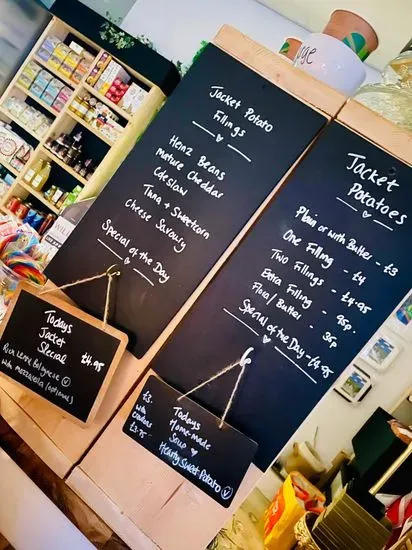 Jacket Potato
Fillings
Heinz Beans
Mature Cheddar
Coleslaw
Tuna + Sweetcorn
Cheese Savoury
Special of the Day
Jacket
Potatoes
Plain or with Butter - £3
One Filling - £4
Two Fillings - £4.95
Extra Filling - 95p
Flora / Butter - 35p
Special of the Day - £4.95
Todays
Jacket
Special £4.95
Rich Lenny Bolognese V
with mozzarella (optional)
Todays
Home-made
Soup
Hearty Sweet Potato V
£3.
with
Croutons
£3.75